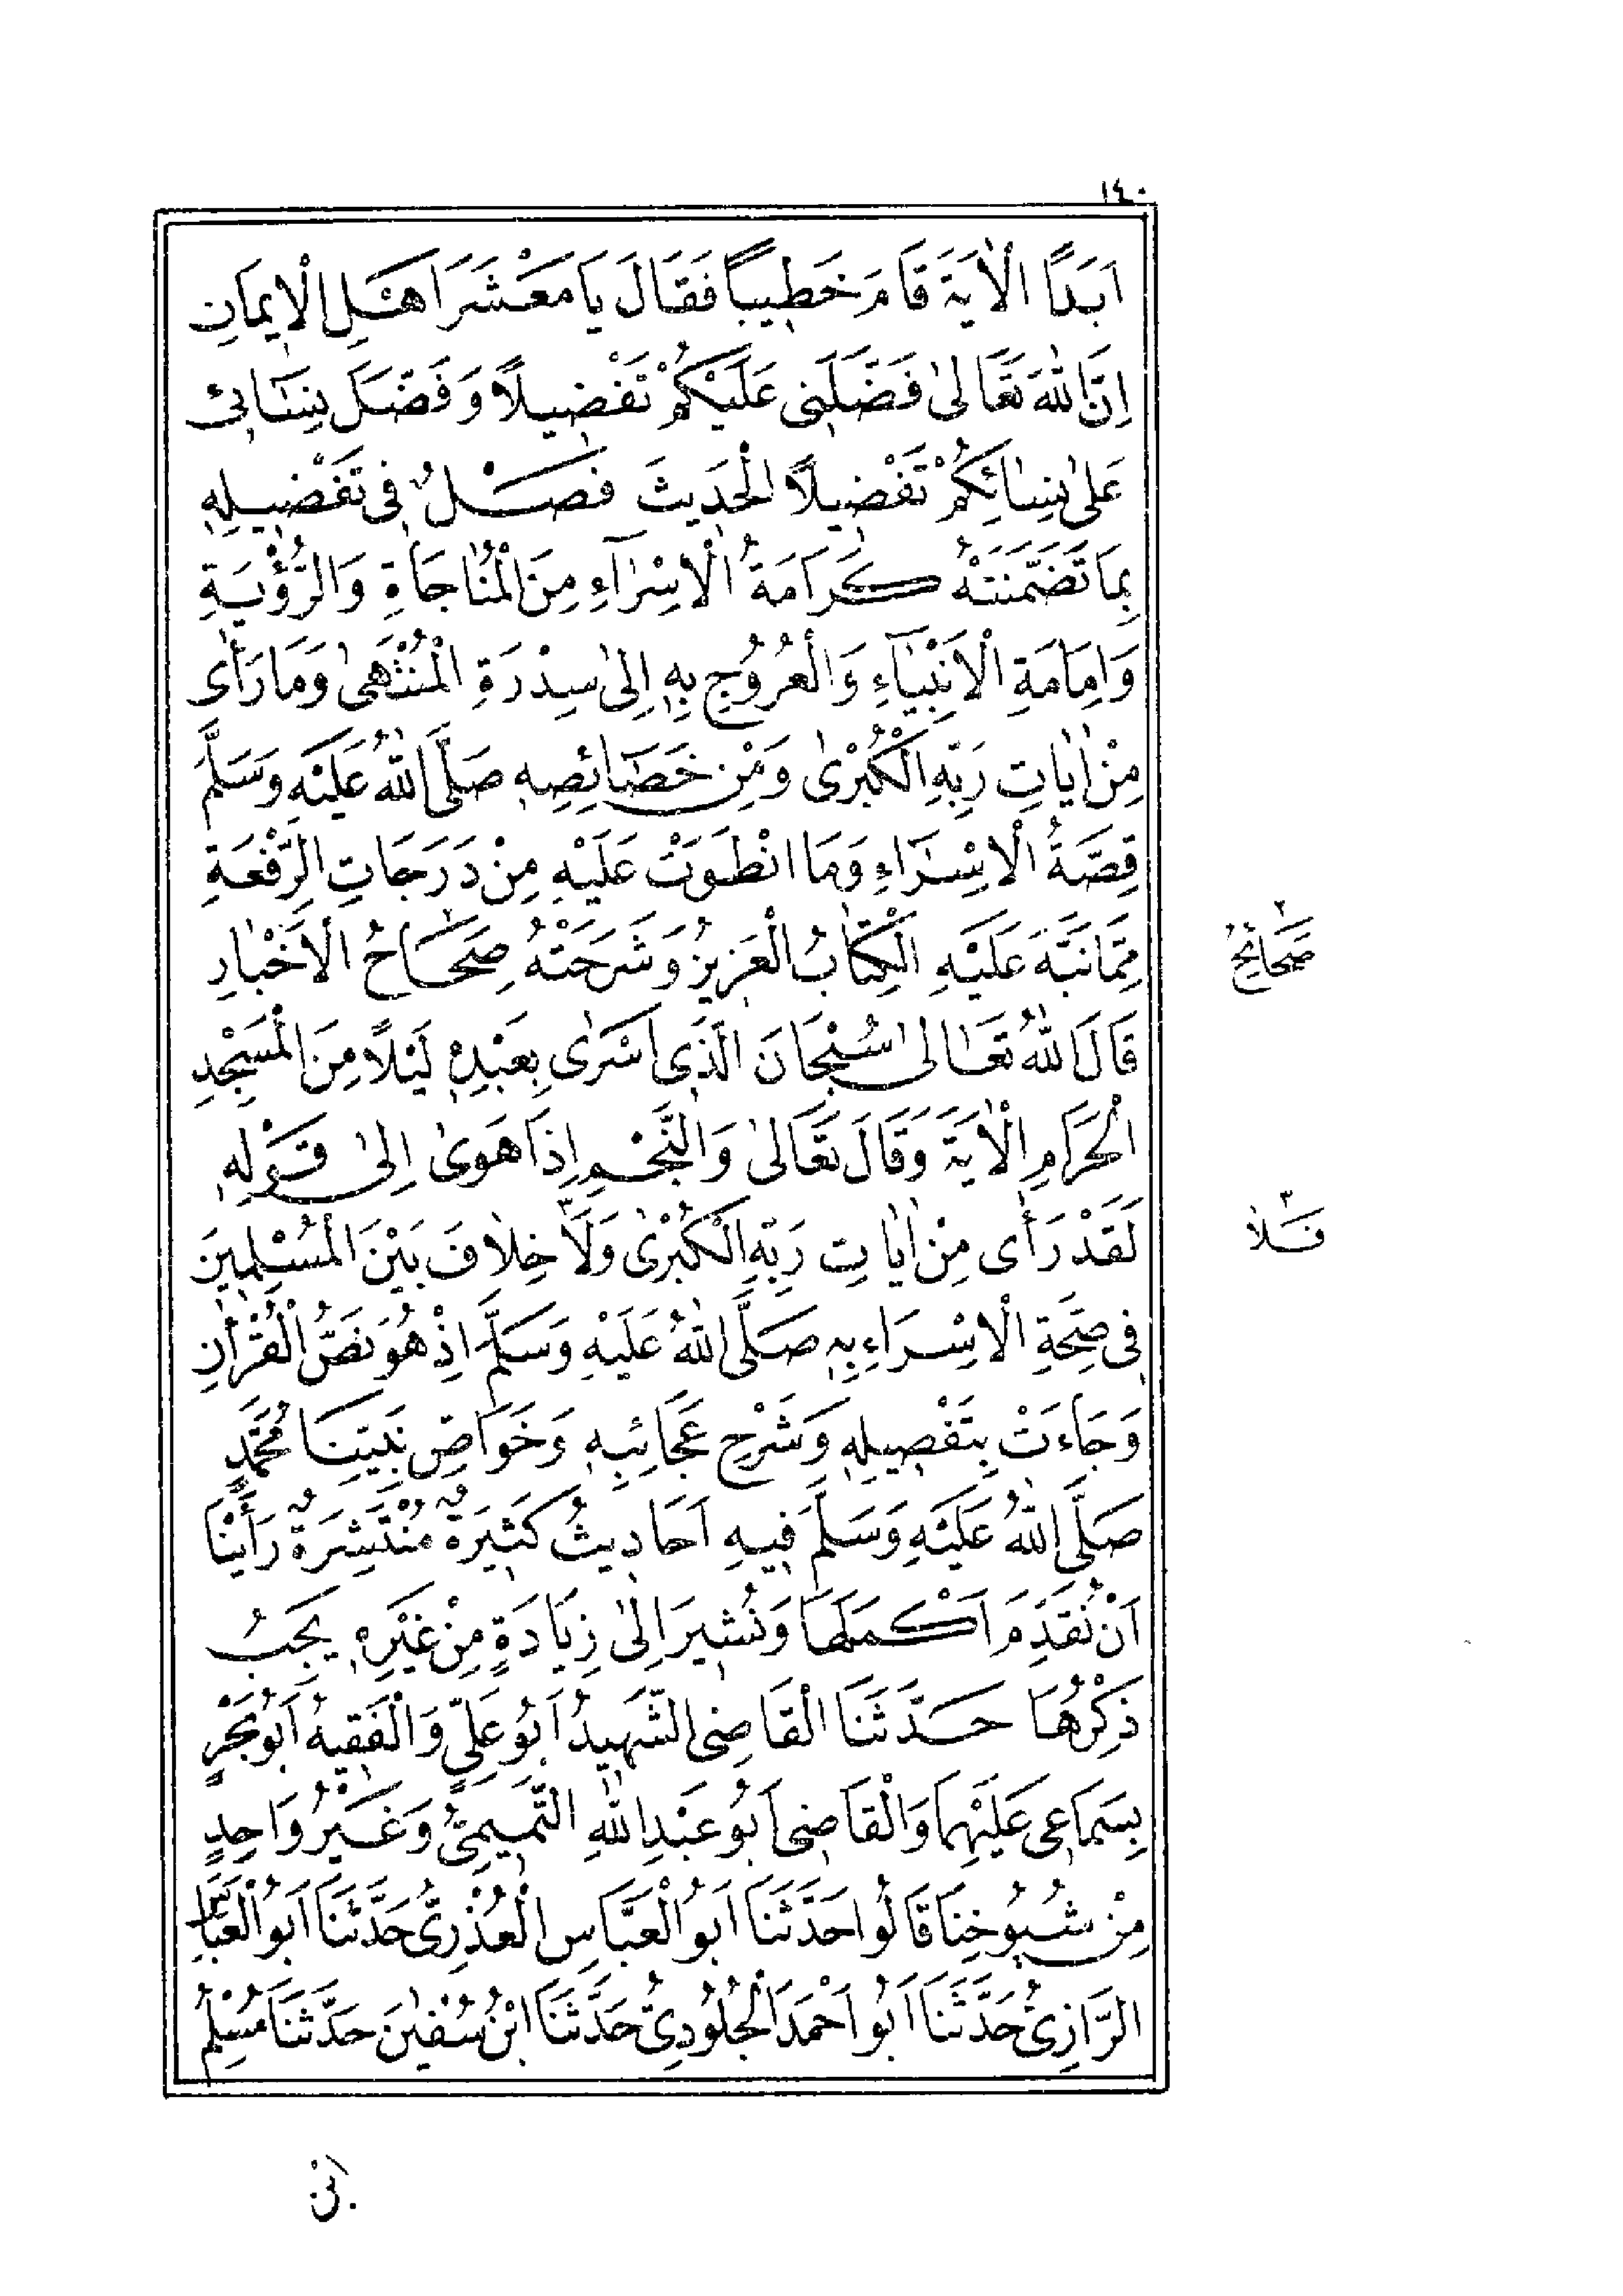 ١٤٠
اَبَدًا الْاٰيَةَ قَامَ خَطِيبًا فَقَالَ يَا مَعْشَرَ اَهْلِ الْاِيمَانِ
اِنَّ اللّٰهَ تَعَالٰى فَضَّلَنِى عَلَيْكُمْ تَفْضِيلًا وَفَضَّلَ نِسَائِى
عَلٰى نِسَائِكُمْ تَفْضِيلًا الْحَدِيثَ فَصْلٌ فِى تَفْضِيلِهِ
بِمَا تَضَمَّنَتْهُ كَرَامَةُ الْاِسْرَآءِ مِنَ الْمُنَاجَاةِ وَالرُّؤْيَةِ
وَاِمَامَةِ الْاَنْبِيَآءِ وَالْعُرُوجِ بِهِ اِلٰى سِدْرَةِ الْمُنْتَهٰى وَمَا رَأٰى
مِنْ اٰيَاتِ رَبِّهِ الْكُبْرٰى وَمِنْ خَصَائِصِهِ صَلَّى اللّٰهُ عَلَيْهِ وَسَلَّمَ
قِصَّةُ الْاِسْرَآءِ وَمَا انْطَوَتْ عَلَيْهِ مِنْ دَرَجَاتِ الرِّفْعَةِ
مِمَّا نَبَّهَ عَلَيْهِ الْكِتَابُ الْعَزِيزُ وَشَرَحَتْهُ صِحَاحُ ٢ الْاَخْبَارِ
٢ صَحَائِحُ
قَالَ اللّٰهُ تَعَالٰى سُبْحَانَ الَّذِى اَسْرٰى بِعَبْدِهِ لَيْلًا مِنَ الْمَسْجِدِ
الْحَرَامِ الْاٰيَةَ وَقَالَ تَعَالٰى وَالنَّجْمِ اِذَا هَوٰى اِلٰى قَوْلِهِ
لَقَدْ رَأٰى مِنْ اٰيَاتِ رَبِّهِ الْكُبْرٰى وَلَا ٣ خِلَافَ بَيْنَ الْمُسْلِمِينَ
٣ فَلَا
فِى صِحَّةِ الْاِسْرَاءِ بِهِ صَلَّى اللّٰهُ عَلَيْهِ وَسَلَّمَ اِذْ هُوَ نَصُّ الْقُرْاٰنِ
وَجَاءَتْ بِتَفْصِيلِهِ وَشَرْحِ عَجَائِبِهِ وَخَوَاصِّ نَبِيِّنَا مُحَمَّدٍ
صَلَّى اللّٰهُ عَلَيْهِ وَسَلَّمَ فِيهِ اَحَادِيثُ كَثِيرَةٌ مُنْتَشِرَةٌ رَأَيْنَا
اَنْ نُقَدِّمَ اَكْمَلَهَا وَنُشِيرَ اِلٰى زِيَادَةٍ مِنْ غَيْرِهِ يَجِبُ
ذِكْرُهَا حَدَّثَنَا الْقَاضِى الشَّهِيدُ اَبُو عَلِىٍّ وَالْفَقِيهُ اَبُو بَحْرٍ
بِسَمَاعِى عَلَيْهِمَا وَالْقَاضِى اَبُو عَبْدِ اللّٰهِ التَّمِيمِىُّ وَغَيْرُ وَاحِدٍ
مِنْ شُيُوخِنَا قَالُوا حَدَّثَنَا اَبُو الْعَبَّاسِ الْعُذْرِىُّ حَدَّثَنَا اَبُو الْعَبَّاسِ
الرَّازِىُّ حَدَّثَنَا اَبُو اَحْمَدَ الْجُلُودِىُّ حَدَّثَنَا ابْنُ سُفْيٰنَ حَدَّثَنَا مُسْلِمُ